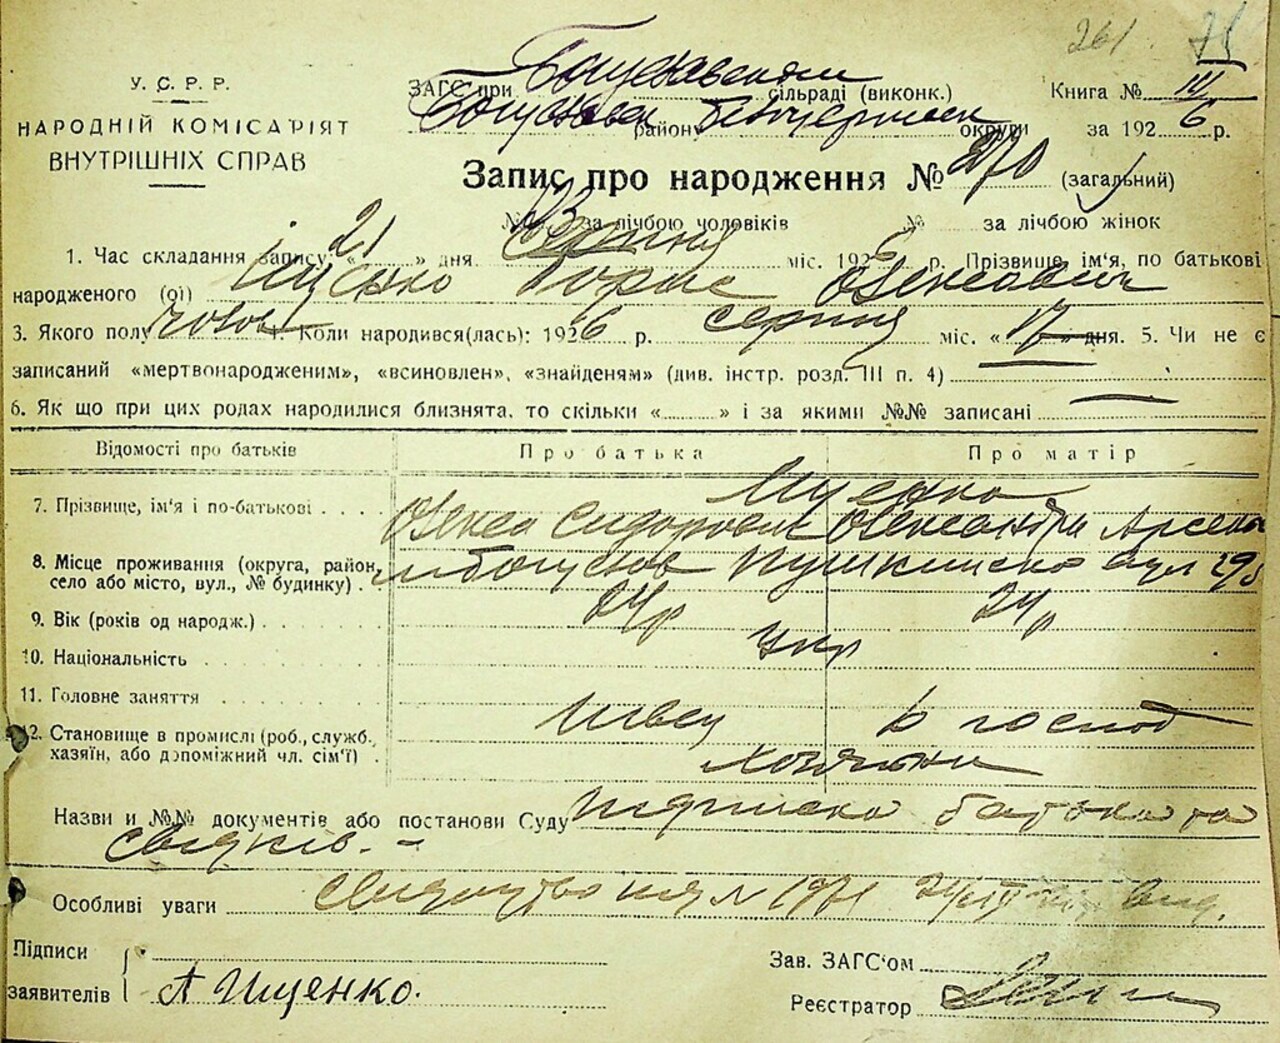 261. 71
У. С. Р. Р.
НАРОДНІЙ КОМІСАРІЯТ
ВНУТРІШНІХ СПРАВ
ЗАГС при Богуславськім сільраді (виконк.)
Богуславськ району Білоцерківськ округи
Книга № III
за 1926 р.
Запис про народження № 270 (загальний)
№ за лічбою чоловіків № за лічбою жінок
1. Час складання запису: «21» дня Серпня міс. 1926 р. Прізвище, ім'я, по батькові
народженого (ої) Іщенко Борис Олексович
3. Якого полу чолов 4. Коли народився(лась): 1926 р. серпня міс. «17» дня. 5. Чи не є
записаний «мертвонародженим», «всиновлен», «знайденям» (див. інстр. розд. III п. 4)
6. Як що при цих родах народилися близнята, то скільки « » і за якими №№ записані
Відомості про батьків Про батька Про матір
7. Прізвище, ім'я і по-батькові Іщенко
Олекса Сидорович Олександра Арсенов
8. Місце проживання (округа, район,
село або місто, вул., № будинку) м Богуслав Пушкинська вул 29
9. Вік (років од народж.) 24 р 24 р
10. Національність Укр
11. Головне заняття Швец Ю господ
12. Становище в промислі (роб., служб.,
хазяїн, або допоміжний чл. сім'ї) хозяїн
Назви и №№ документів або постанови Суду Підписка батька та
свідків. -
Особливі уваги 1971
Підписи
заявителів А Іщенко.
Зав. ЗАГС'ом
Реєстратор